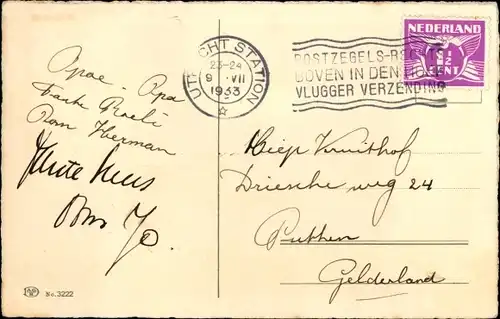 Opoe - Opa
Tante
Oom Herman
Tante
Oom Jo.
UTRECHT STATION
23-24
9 VII
1933
POSTZEGELS-RECHTS
BOVEN IN DEN HOEK
VLUGGER VERZENDING
NEDERLAND
1½
CENT
Kruithof
Driesche weg 24
Putten
Gelderland
No. 3222